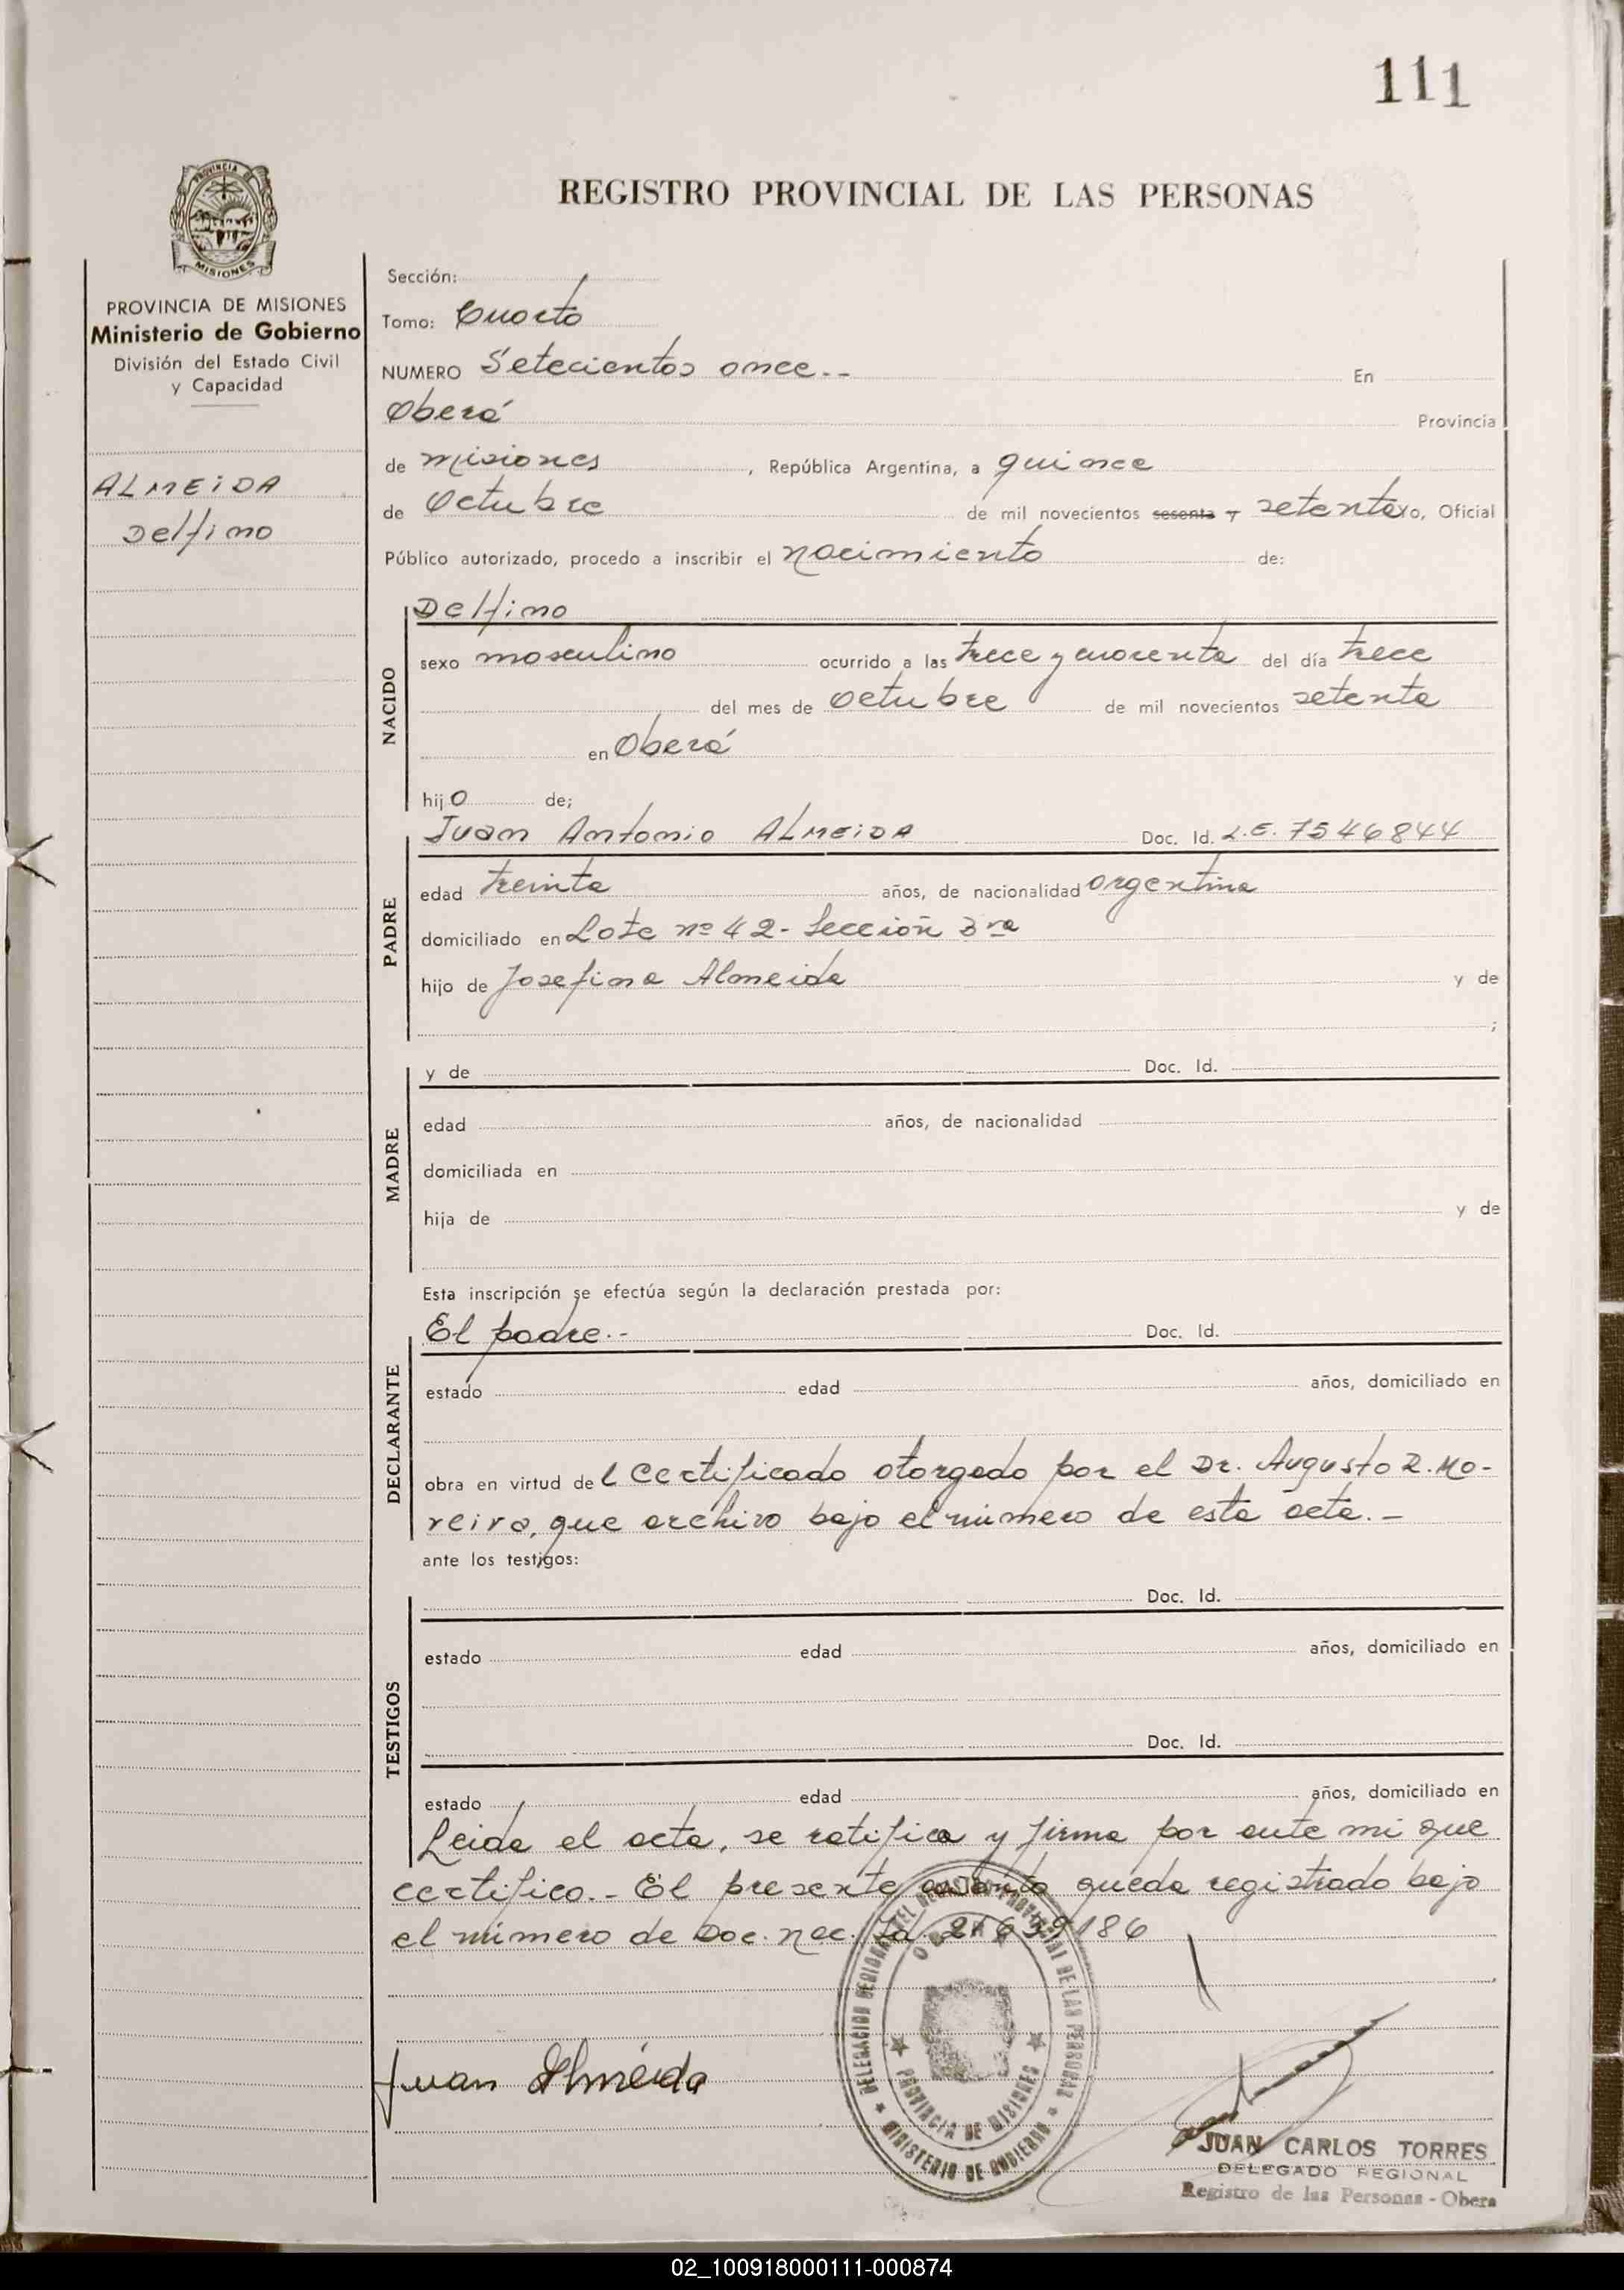 111
PROVINCIA DE
MISIONES
REGISTRO PROVINCIAL DE LAS PERSONAS
PROVINCIA DE MISIONES
Ministerio de Gobierno
División del Estado Civil
y Capacidad
ALMEIDA
Delfino
Sección:
Tomo: Cuarto
NUMERO Setecientos once.- En
Oberá Provincia
de Misiones, República Argentina, a quince
de Octubre de mil novecientos sesenta y setenta yo, Oficial
Público autorizado, procedo a inscribir el nacimiento de:
NACIDO
Delfino
sexo masculino ocurrido a las trece y cuarenta del día trece
del mes de Octubre de mil novecientos setenta
en Oberá
hijo de;
PADRE
Juan Antonio ALMEIDA Doc. Id. L.E. 7546844
edad treinta años, de nacionalidad argentina
domiciliado en Lote nº 42- Sección 3ra
hijo de Josefina Almeida y de
;
MADRE
y de Doc. Id.
edad años, de nacionalidad
domiciliada en
hija de y de
Esta inscripción se efectúa según la declaración prestada por:
DECLARANTE
El padre.- Doc. Id.
estado edad años, domiciliado en
obra en virtud del certificado otorgado por el Dr. Augusto R. Mo-
reira, que archivo bajo el número de esta acta.-
ante los testigos:
TESTIGOS
Doc. Id.
estado edad años, domiciliado en
Doc. Id.
estado edad años, domiciliado en
Leida el acta, se ratifica y firma por ante mi que
certifico.- El presente asiento queda registrado bajo
el número de Doc. nac. Id 21639186
DELEGACION REGIONAL DEL REGISTRO PROVINCIAL DE LAS PERSONAS
OBERA
PROVINCIA DE MISIONES
MINISTERIO DE GOBIERNO
Juan Almeida
JUAN CARLOS TORRES
DELEGADO REGIONAL
Registro de las Personas - Obera
02_100918000111-000874